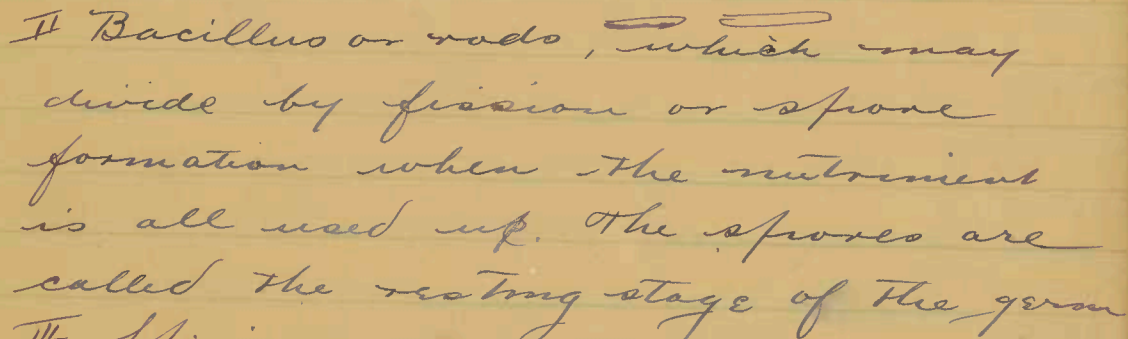 II Bacillus or rods, which may
divide by fission or spore
formation when the nutriment
is all used up. The spores are
called the resting stage of the germ
III